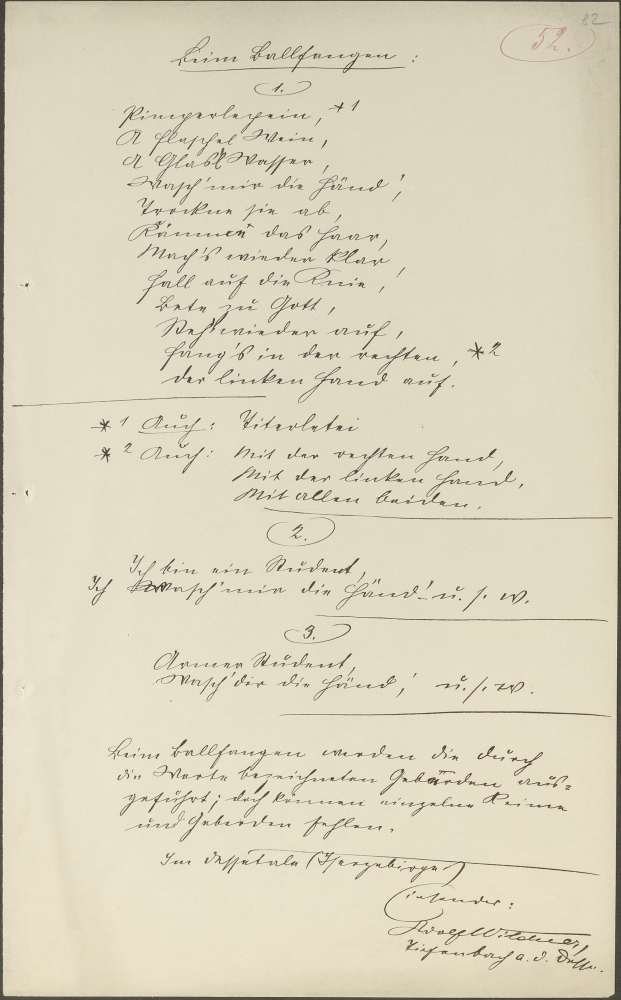 82
52.
Beim Ballfangen:
1.
Pimperlepein, *1
A Flaschel Wein,
A Glasl Wasser,
Wasch' mir die Händ',
Trockne sie ab,
Kämmen das Haar,
Mach's wieder klar
Fall auf die Knie,
Bete zu Gott,
Steh wieder auf,
Fang's in der rechten, *2
der linken Hand auf.
*1 Auch: Titerletei
*2 Auch: Mit der rechten Hand,
Mit der linken Hand,
Mit allen beiden.
2.
Ich bin ein Student,
Ich wasch' mir die Händ' u. s. w.
3.
Armer Student,
Wasch' dir die Händ', u. s. w.
Beim Ballfangen werden die durch
die Worte bezeichneten Gebärden aus-
geführt; doch können einzelne Reime
und Geberden fehlen.
Im Dessetale (Isergebirge)
Einsender:
Adolf Wildner,
Tiefenbach a. d. Desse.